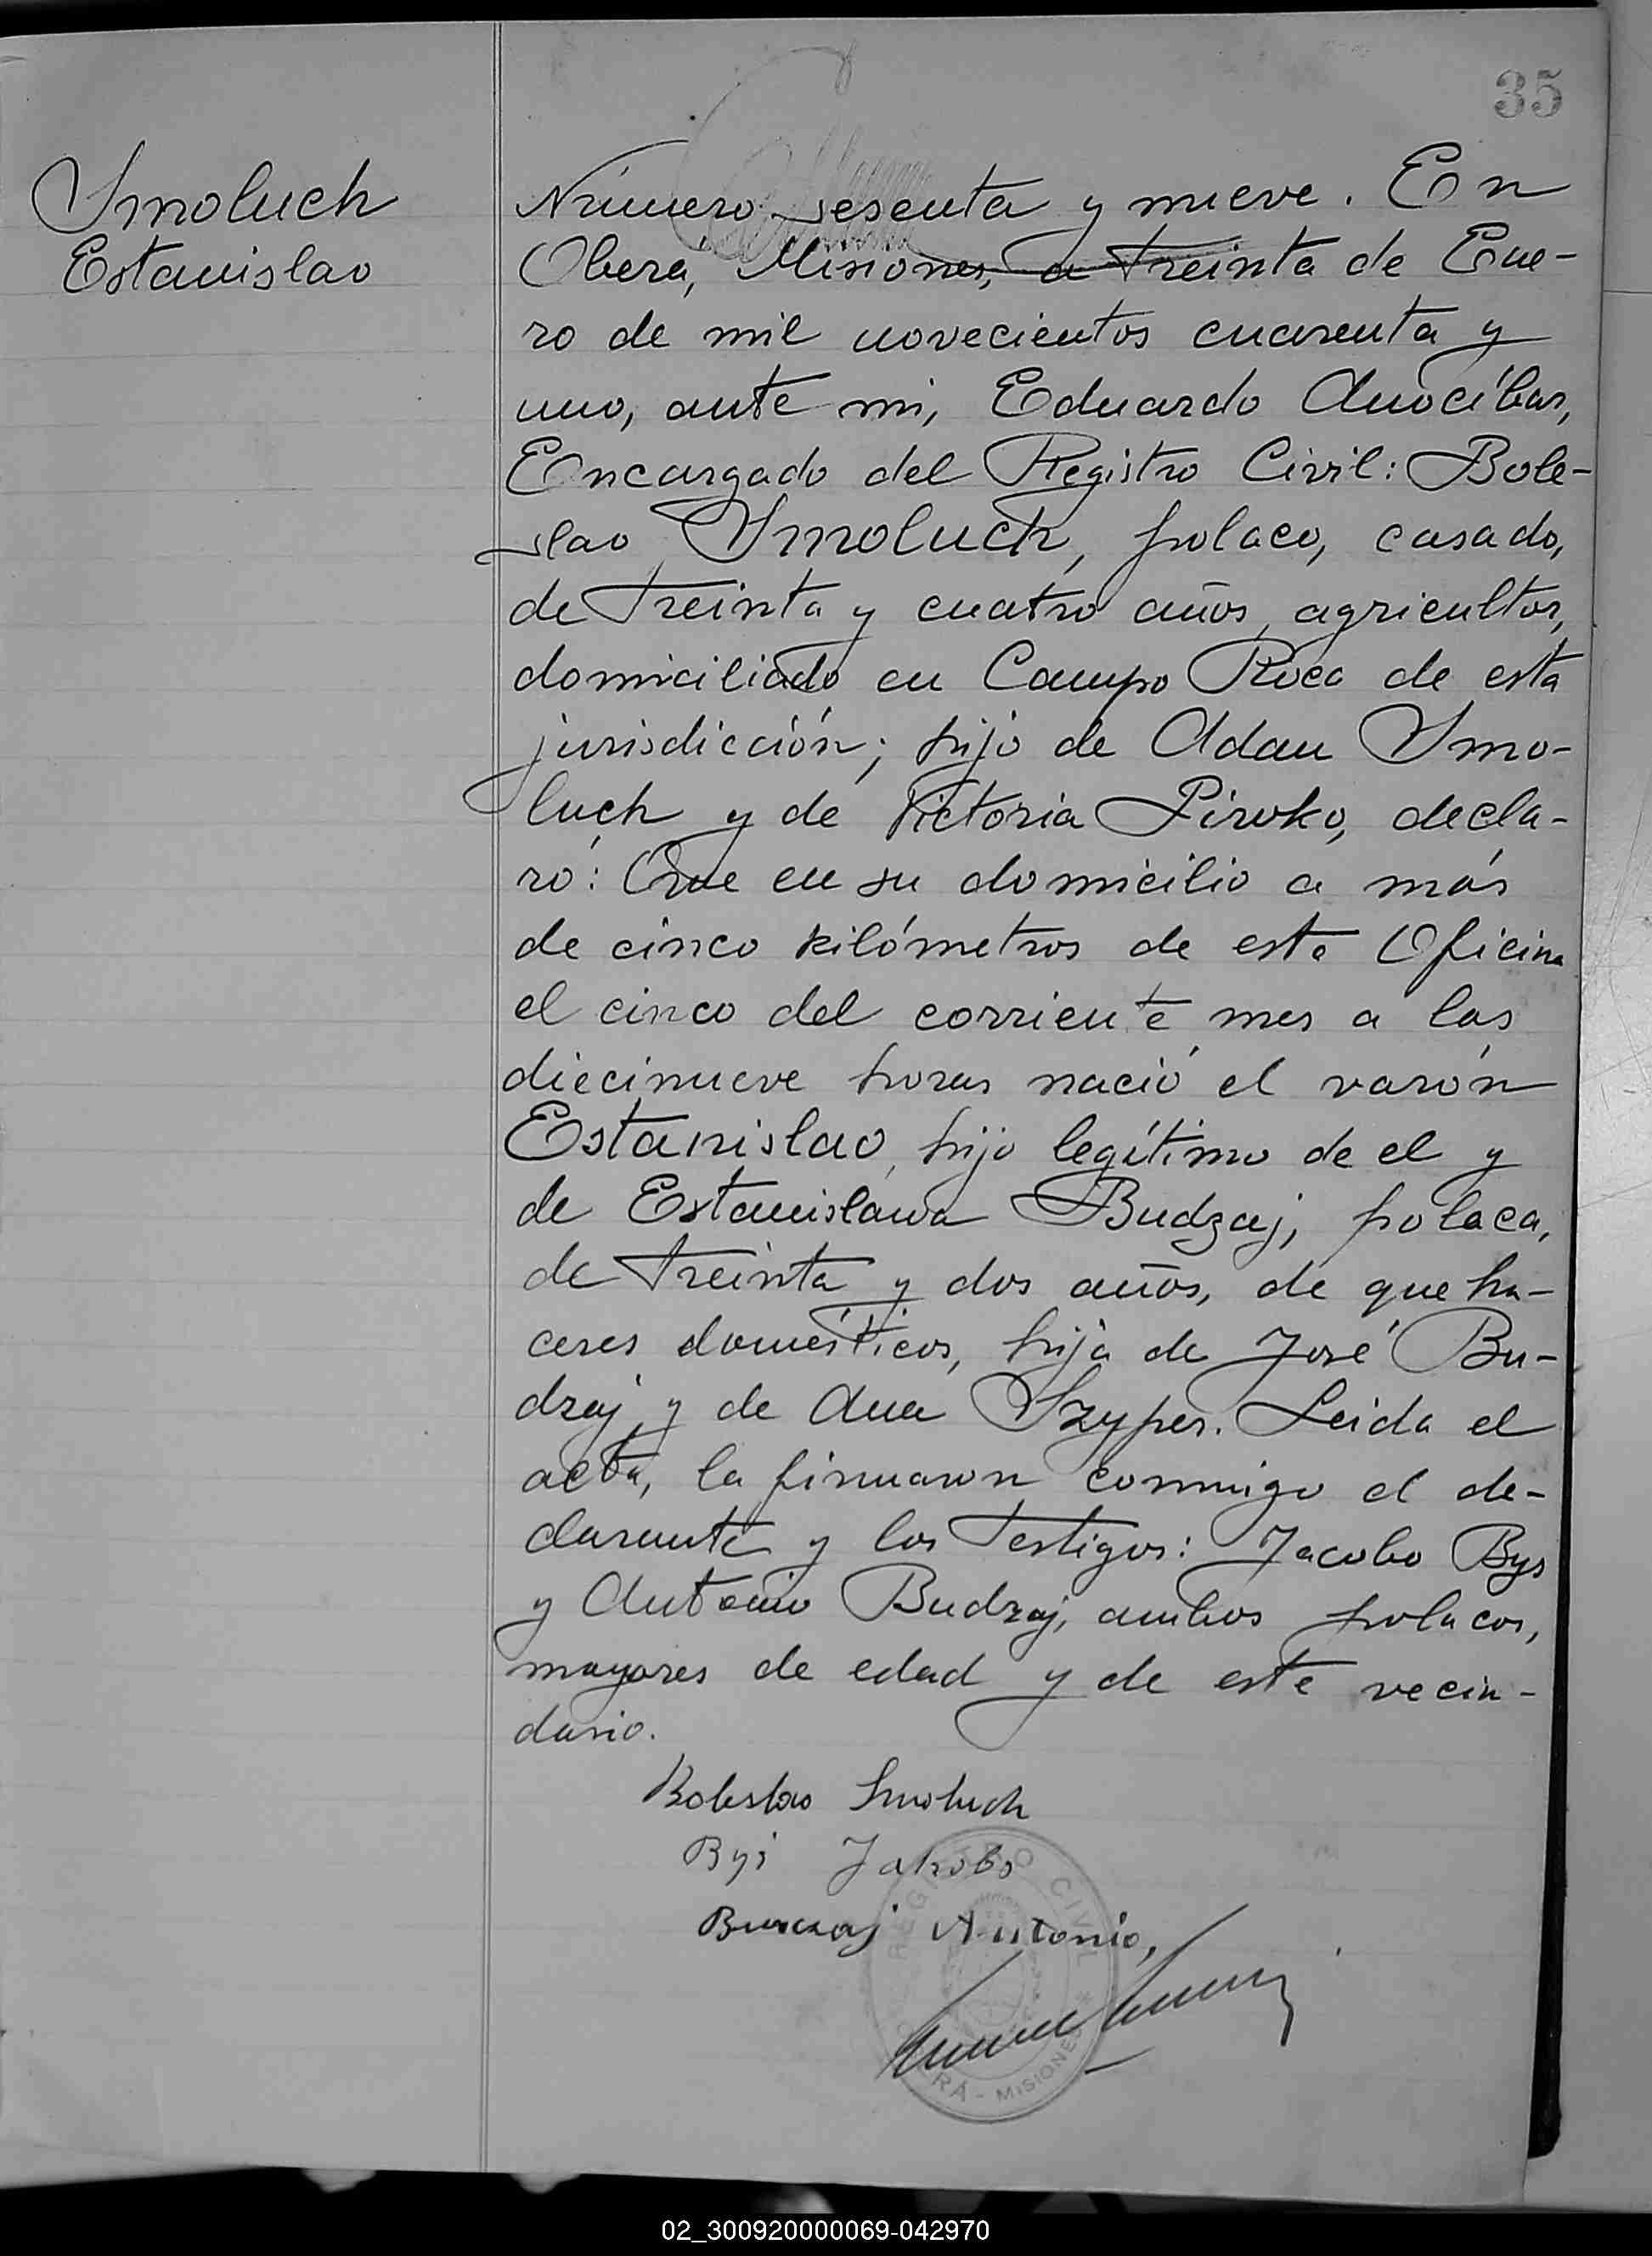 35
Smoluch
Estanislao
Número sesenta y nueve. En
Oberá, Misiones, a treinta de Ene-
ro de mil novecientos cuarenta y
uno, ante mi, Eduardo Anocíbar,
Encargado del Registro Civil: Bole-
slao Smoluch, polaco, casado,
de treinta y cuatro años, agricultor,
domiciliado en Campo Roca de esta
jurisdicción; hijo de Adan Smo-
luch y de Victoria Piroko, decla-
ró: Que en su domicilio a más
de cinco kilómetros de esta Oficina
el cinco del corriente mes a las
diecinueve horas nació el varón
Estanislao, hijo legítimo de el y
de Estanislawa Budzaj, polaca,
de treinta y dos años, de queha-
ceres domésticos, hija de José Bu-
dzaj y de Ana Szyper. Leida el
acta, la firmaron conmigo el de-
clarante y los testigos: Jacobo Bys
y Antonio Budzaj, ambos polacos,
mayores de edad y de este vecin-
dario.
Boleslao Smoluch
Bys Jakobo
Budzaj Antonio,
REGISTRO CIVIL
OBERÁ - MISIONES
02_300920000069-042970